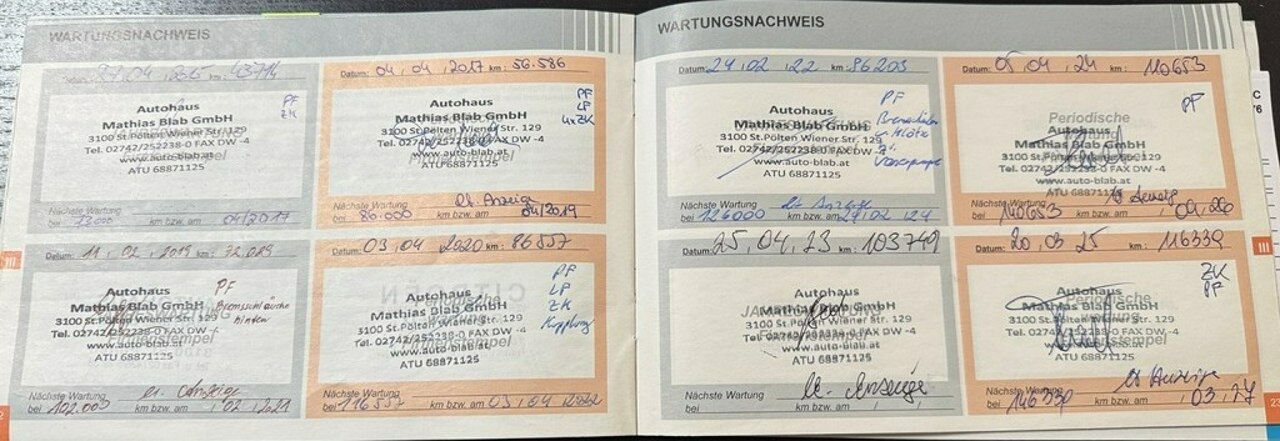 WARTUNGSNACHWEIS
Datum: 27.04.2015 km: 43714
Autohaus
Mathias Blab GmbH
3100 St.Pölten Wiener Str. 129
Tel. 02742/252238-0 FAX DW -4
www.auto-blab.at
ATU 68871125
PF
ZK
Nächste Wartung
bei km bzw. am 04/2017
Datum: 04.04.2017 km: 56.586
Autohaus
Mathias Blab GmbH
3100 St.Pölten Wiener Str. 129
Tel. 02742/252238-0 FAX DW -4
www.auto-blab.at
ATU 68871125
PF
LP
4xZK
Nächste Wartung lt. Anzeige
bei 86.000 km bzw. am 04/2019
Datum: 11.02.2019 km: 72.089
Autohaus
Mathias Blab GmbH
3100 St.Pölten Wiener Str. 129
Tel. 02742/252238-0 FAX DW -4
www.auto-blab.at
ATU 68871125
PF
Bremsschläuche
hinten
Nächste Wartung lt. Anzeige
bei 102.000 km bzw. am .02.2021
Datum: 03.04.2020 km: 86557
Autohaus
Mathias Blab GmbH
3100 St.Pölten Wiener Str. 129
Tel. 02742/252238-0 FAX DW -4
www.auto-blab.at
ATU 68871125
PF
LP
ZK
Kupplung
Nächste Wartung
bei 116557 km bzw. am 03.04.2022
III
WARTUNGSNACHWEIS
Datum: 24.02.22 km: 96203
Autohaus
Mathias Blab GmbH
3100 St.Pölten Wiener Str. 129
Tel. 02742/252238-0 FAX DW -4
www.auto-blab.at
ATU 68871125
PF
Nächste Wartung lt. Anzeige
bei 126000 km bzw. am 24.02.24
Datum: 05.04.24 km: 110653
Periodische
Autohaus
Mathias Blab GmbH
3100 St.Pölten Wiener Str. 129
Tel. 02742/252238-0 FAX DW -4
www.auto-blab.at
ATU 68871125
PF
Nächste Wartung lt. Anzeige
bei 140653 km bzw. am .04.26
Datum: 25.04.23 km: 103749
Autohaus
Mathias Blab GmbH
3100 St.Pölten Wiener Str. 129
Tel. 02742/252238-0 FAX DW -4
www.auto-blab.at
ATU 68871125
Nächste Wartung lt. Anzeige
bei km bzw. am
Datum: 20.03.25 km: 116339
Autohaus
Mathias Blab GmbH
3100 St.Pölten Wiener Str. 129
Tel. 02742/252238-0 FAX DW -4
www.auto-blab.at
ATU 68871125
ZK
PF
Nächste Wartung lt. Anzeige
bei 146330 km bzw. am .03.27
III
23